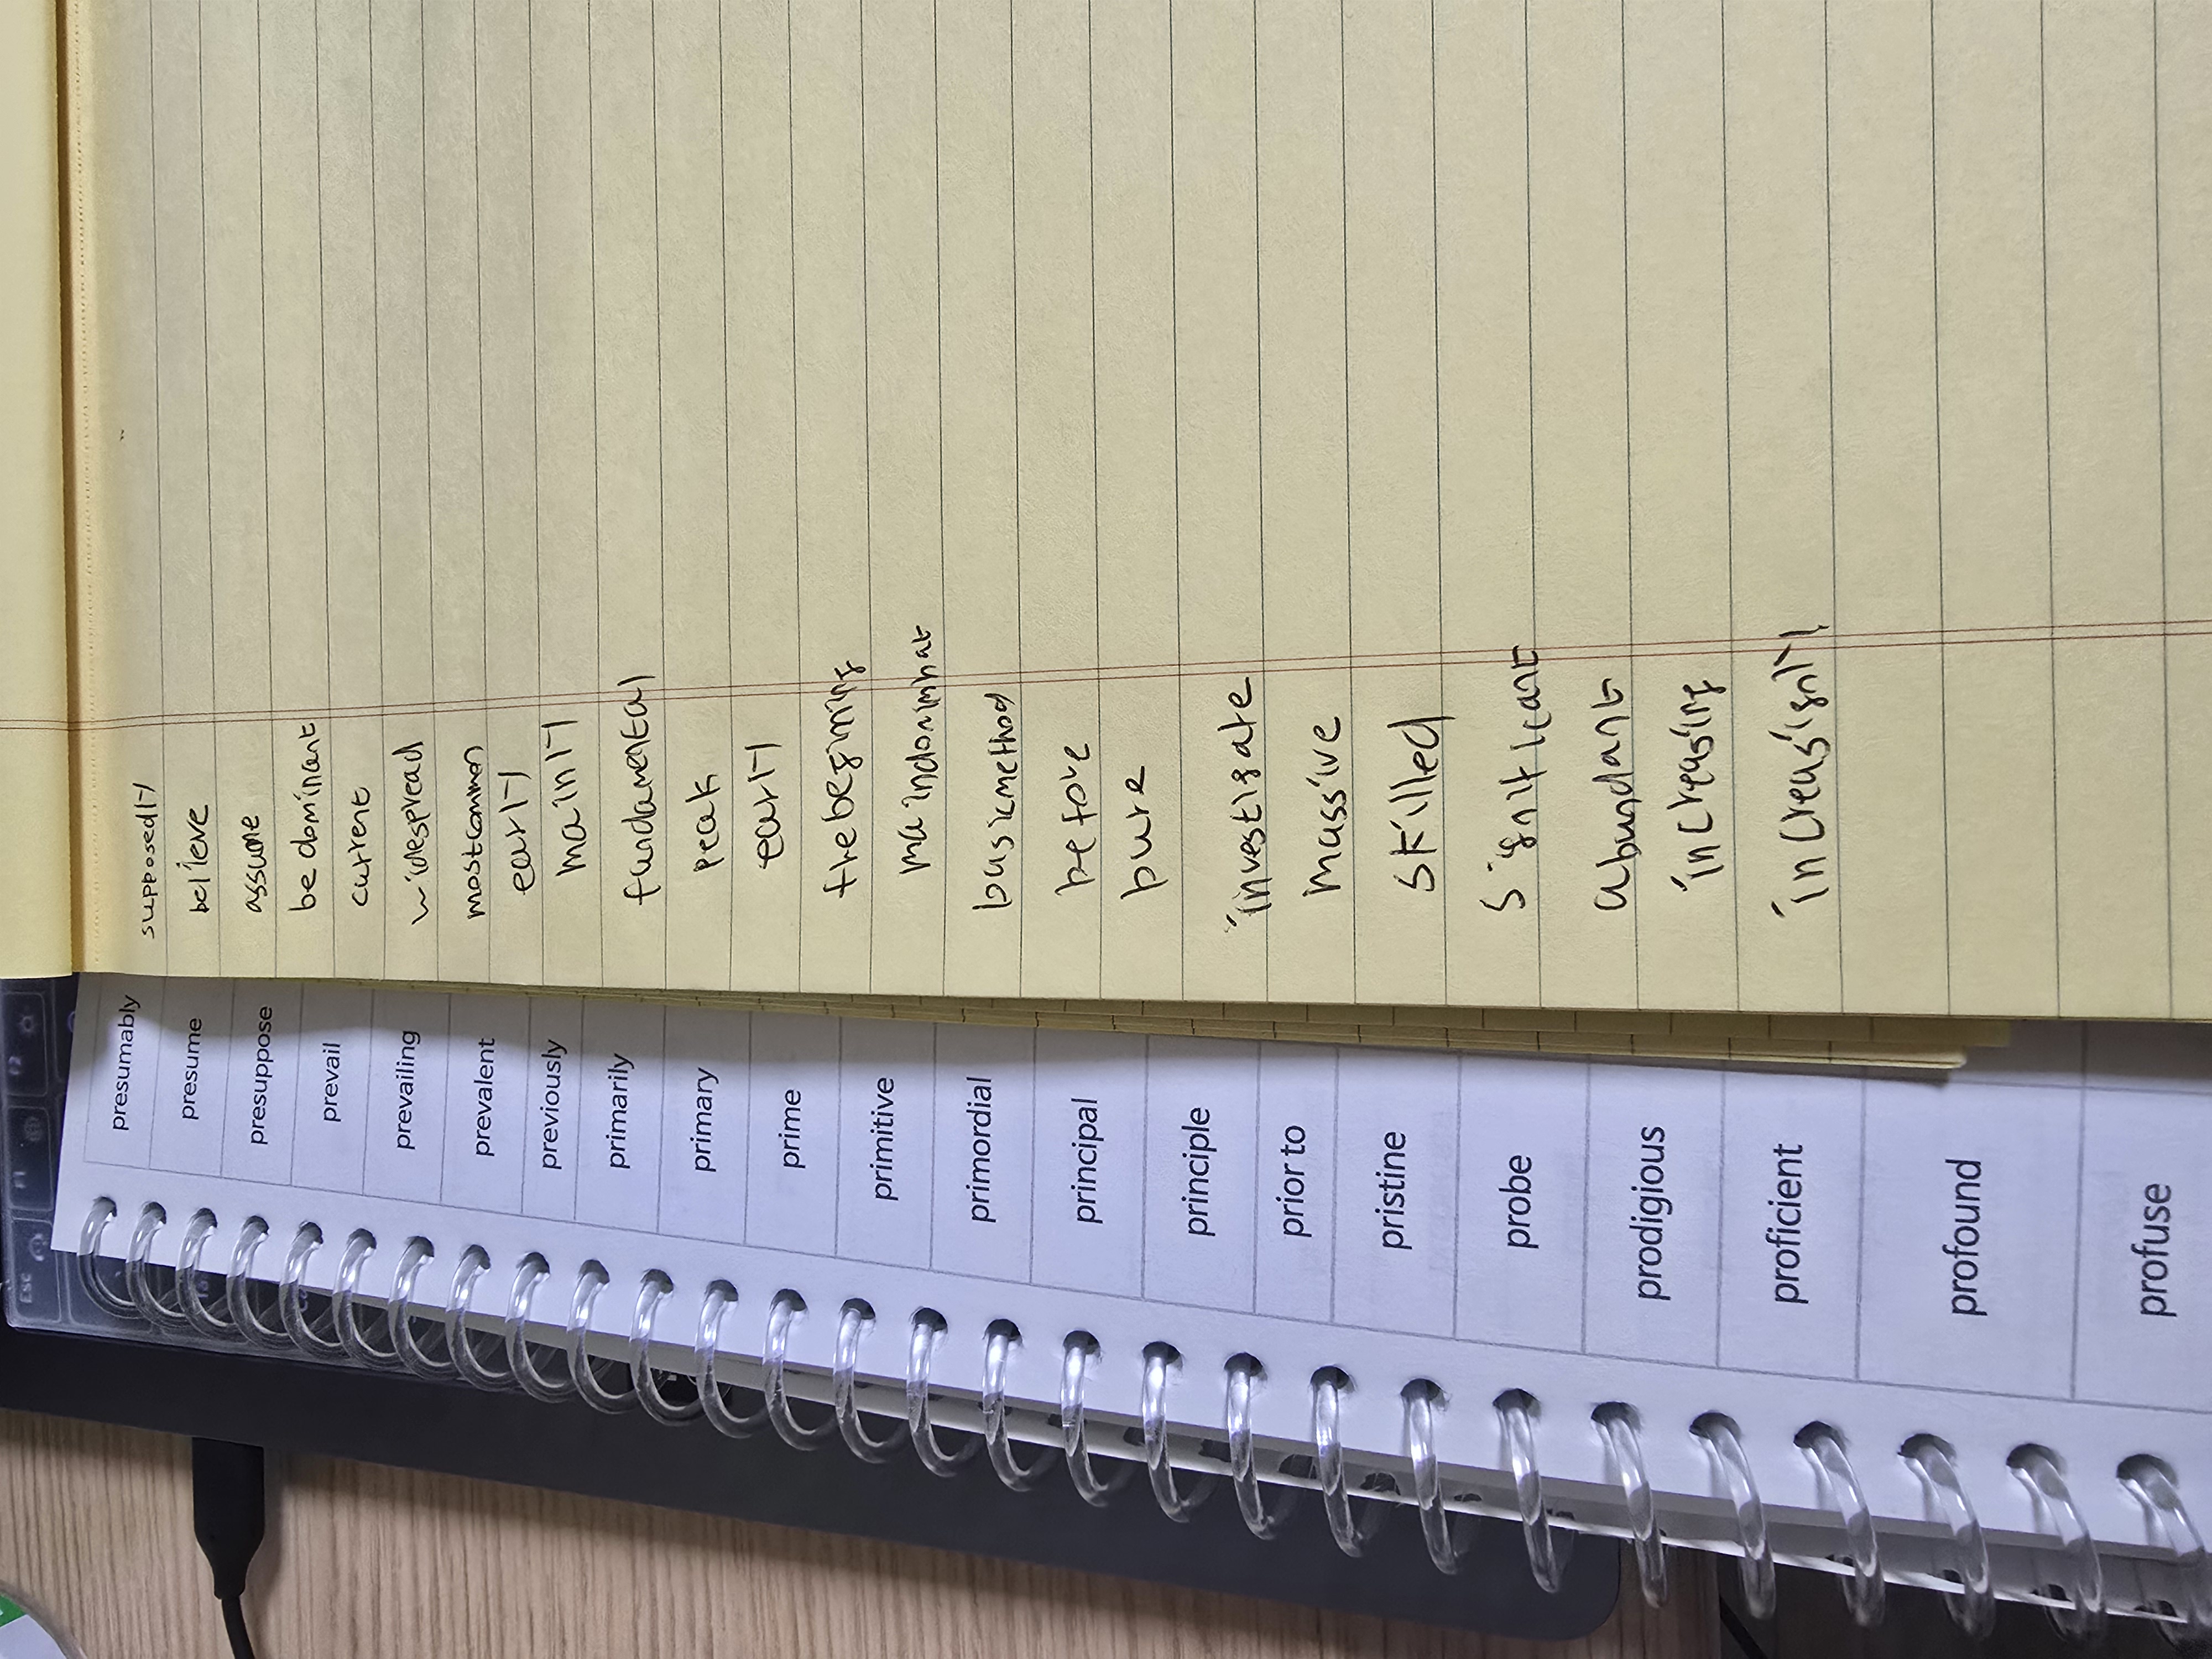 supposedly
believe
assume
be dominant
current
widespread
mostcommon
early
mainly
fundamental
peak
early
thebeginning
maindominnat
basicmethod
before
pure
investigate
massive
skilled
significant
abundant
increasing
increasignly
presumably
presume
presuppose
prevail
prevailing
prevalent
previously
primarily
primary
prime
primitive
primordial
principal
principle
prior to
pristine
probe
prodigious
proficient
profound
profuse
ESC
F1
F2